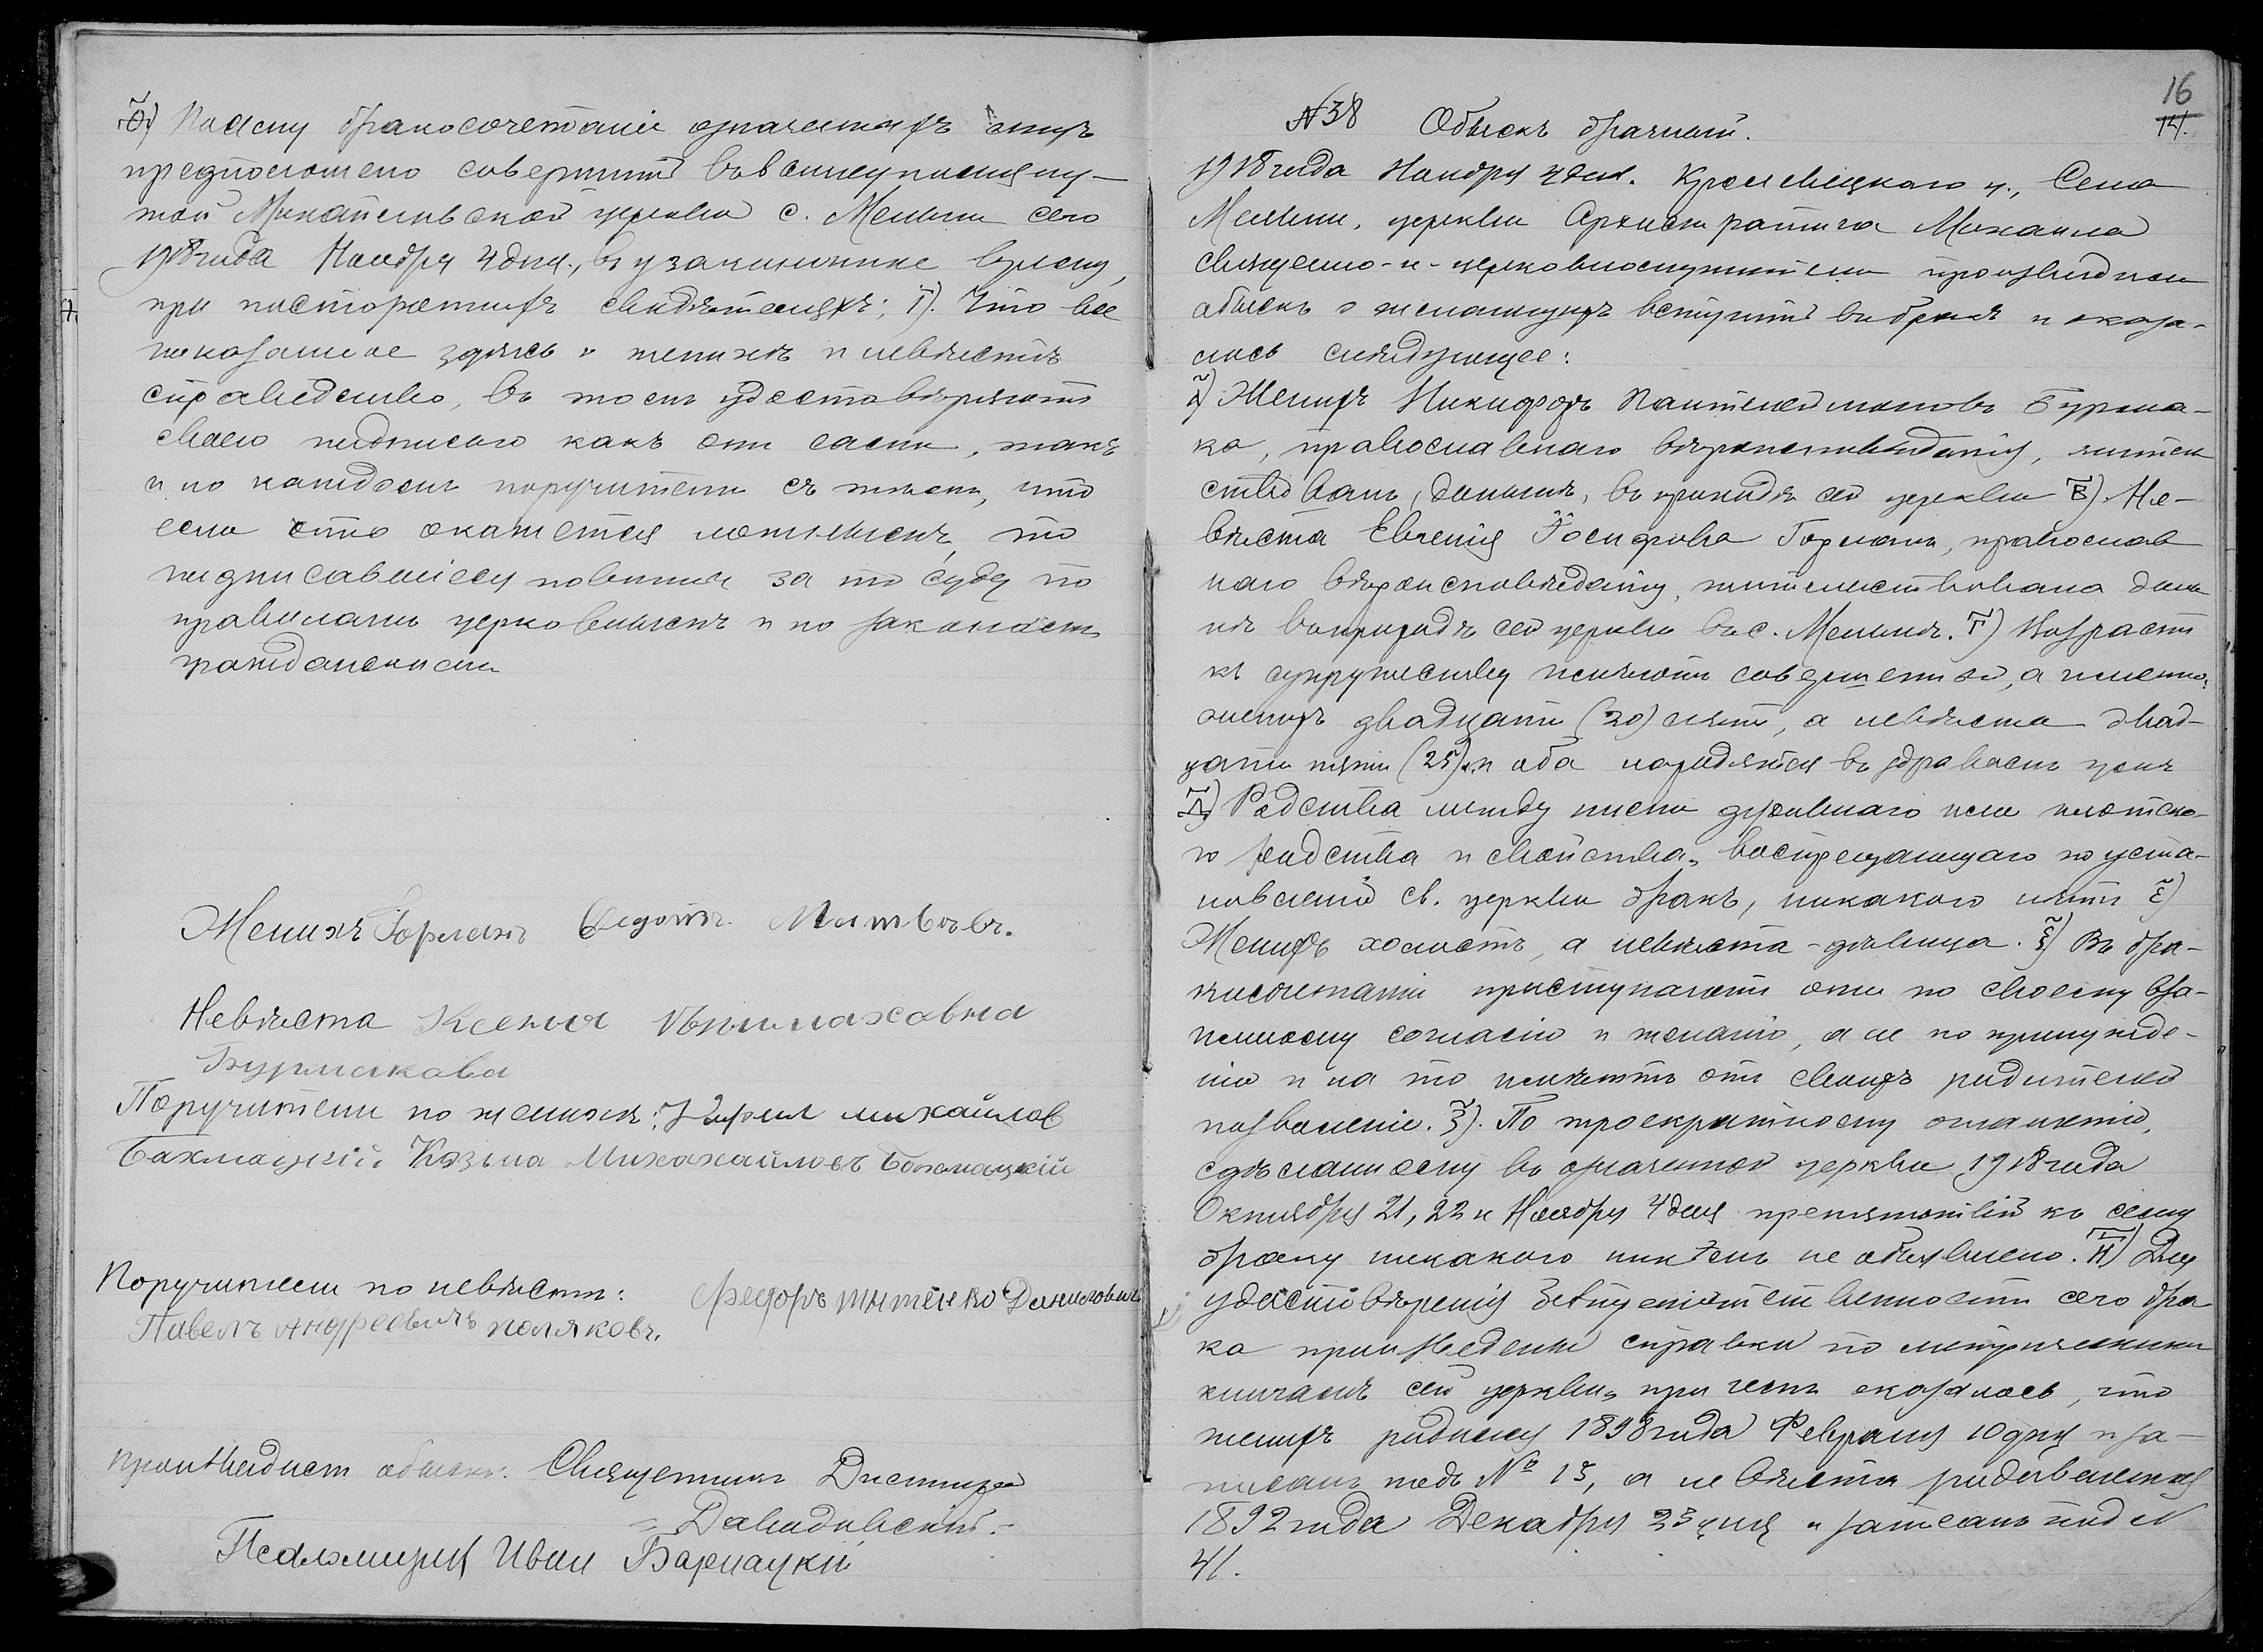 Ѳ) Посему бракосочетаніе означенныхъ лицъ
предположено совершить въ вышеупомяну-
той Михайловской церкви с. Мельни сего
1918 года Ноября 4 дня, въ узаконенное время,
при постороннихъ свидѣтеляхъ; І). Что все
показанное здѣсь о женихѣ и невѣстѣ
справедливо, въ томъ удостовѣряютъ
своею подписью какъ они сами, такъ
и по каждомъ поручители съ тѣмъ, что
если что окажется ложнымъ, то
подписавшіеся повинны за то суду по
правиламъ церковнымъ и по законамъ
гражданскимъ
Женихъ Горланъ Федотъ Матвѣевъ.
Невѣста Ксенія
Бурмакова
Поручители по женихѣ: Кирил михайлов
Бахмацкій Козьма Михахайловъ Бахмацкій
Поручители по невѣстѣ: Федоръ Данилович
Павелъ Андреевичъ поляковъ.
Произвидист обыскъ: Священникъ Димитрій
Давидовскій.
Псаломщик Иван
16
14.
№38 Обыскъ брачный.
1918 года Ноября 4 дня. Кролевецкаго у., Села
Мельни, церкви Архистратига Михаила
священно-и-церковнослужители производили
обыскъ о желающихъ вступить въ бракъ и оказа-
лось слѣдующее:
А) Женихъ Никифоръ Пантелеймоновъ Бурма-
ка, православнаго вѣроисповѣданія, жител
ствовалъ, донынѣ, въ приходѣ сей церкви В) Не-
вѣста Евгенія Іосифова Горланъ, православ
наго вѣроисповѣданія, жительствовала доны
нѣ въ приходѣ сей церкви въ с. Мельнѣ. Г) Возрастъ
къ супружеству имѣютъ совершенный, а именно:
женихъ двадцати (20) лѣтъ, а невѣста двад-
цати пяти (25) и оба находятся въ здравомъ умѣ
Д) Родства между ними духовнаго или плотско-
го родства и свойства, воспрещающаго по уста-
новленію св. церкви бракъ, никакого нѣтъ Е)
Женихъ холостъ, а невѣста - дѣвица. Ѕ) Въ бра-
косочетанію приступаютъ они по своему вза-
имному согласію и желанію, а не по принужде-
нію и на то имѣютъ отъ своихъ родителей
позволеніе. З). По троекратному оглашенію,
сдѣланному въ означенной церкви 1918 года
Октября 21, 22 и Ноября 4 дня препятствій къ сему
браку никакого никѣмъ не объявлено. И) Для
удостовѣренія безпрепятственности сего бра
ка произведены справки по метрическимъ
книгамъ сей церкви, при чемъ оказалось, что
женихъ родился 1898 года Февраля 10 дня и за-
писанъ подъ № 15, а невѣста родившаяся
1892 года Декабря 23 дня и записанъ подъ №
41.